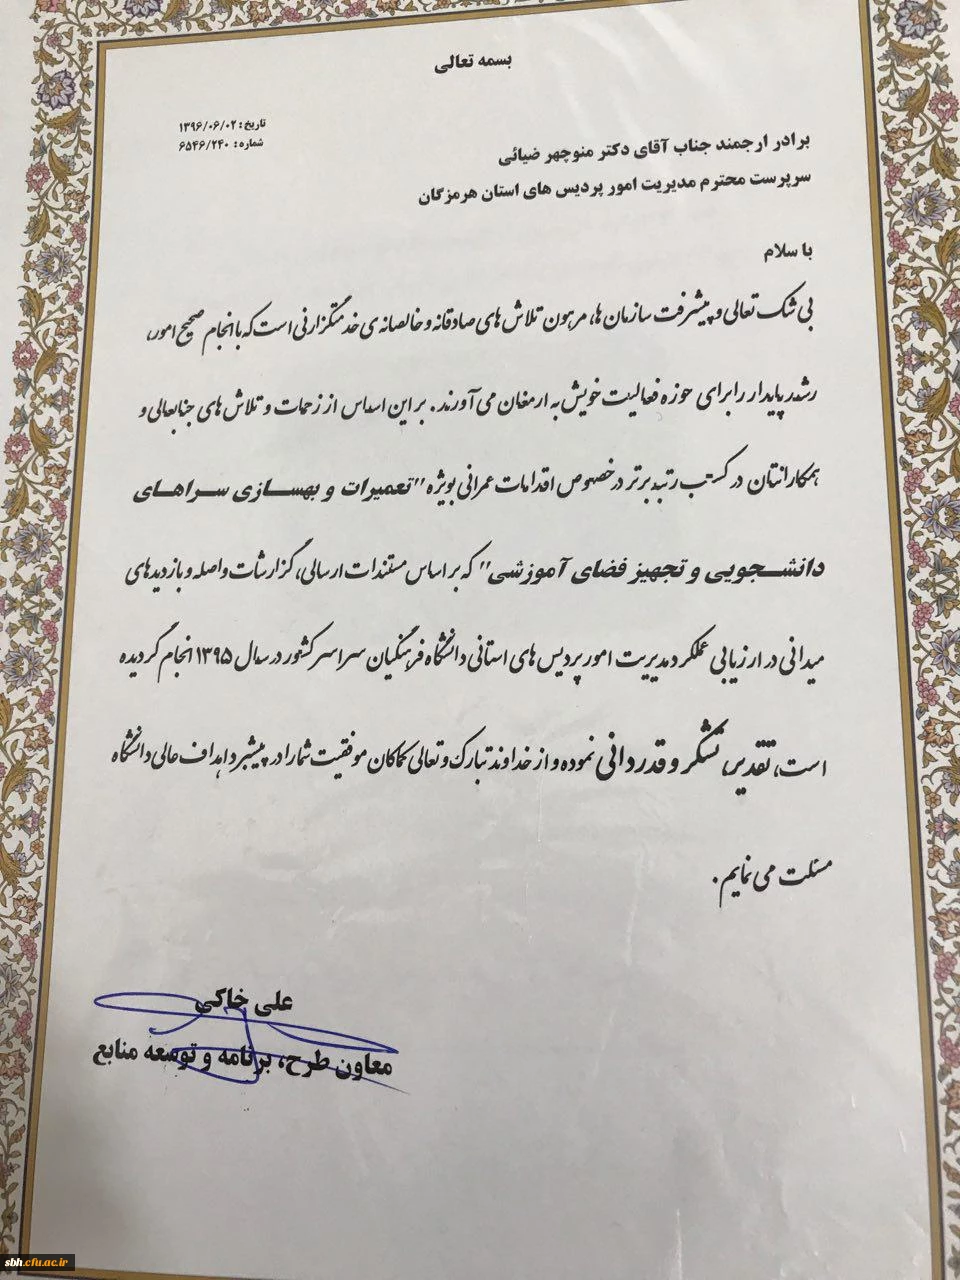 بسمه تعالی
تاریخ: ۱۳۹۶/۰۶/۰۲
شماره: ۶۵۴۶/۲۴۰
برادر ارجمند جناب آقای دکتر منوچهر ضیائی
سرپرست محترم مدیریت امور پردیس های استان هرمزگان
با سلام
بی شک تعالی و پیشرفت سازمان ها، مرهون تلاش های صادقانه و خالصانه ی خدمتگزارنی است که با انجام صحیح امور،
رشد پایدار را برای حوزه فعالیت خویش به ارمغان می آورند. بر این اساس از زحمات و تلاش های جنابعالی و
همکارانتان در کسب رتبه برتر در خصوص اقدامات عمرانی بویژه "تعمیرات و بهسازی سراهای
دانشجویی و تجهیز فضای آموزشی" که بر اساس مستندات ارسالی، گزارشات واصله و بازدیدهای
میدانی در ارزیابی عملکرد مدیریت امور پردیس های استانی دانشگاه فرهنگیان سراسر کشور در سال ۱۳۹۵ انجام گردیده
است، تقدیر، تشکر و قدردانی نموده و از خداوند تبارک و تعالی کماکان موفقیت شما را در پیشبرد اهداف عالی دانشگاه
مسئلت می نمایم.
علی خاکی
معاون طرح، برنامه و توسعه منابع
sbh.cfu.ac.ir